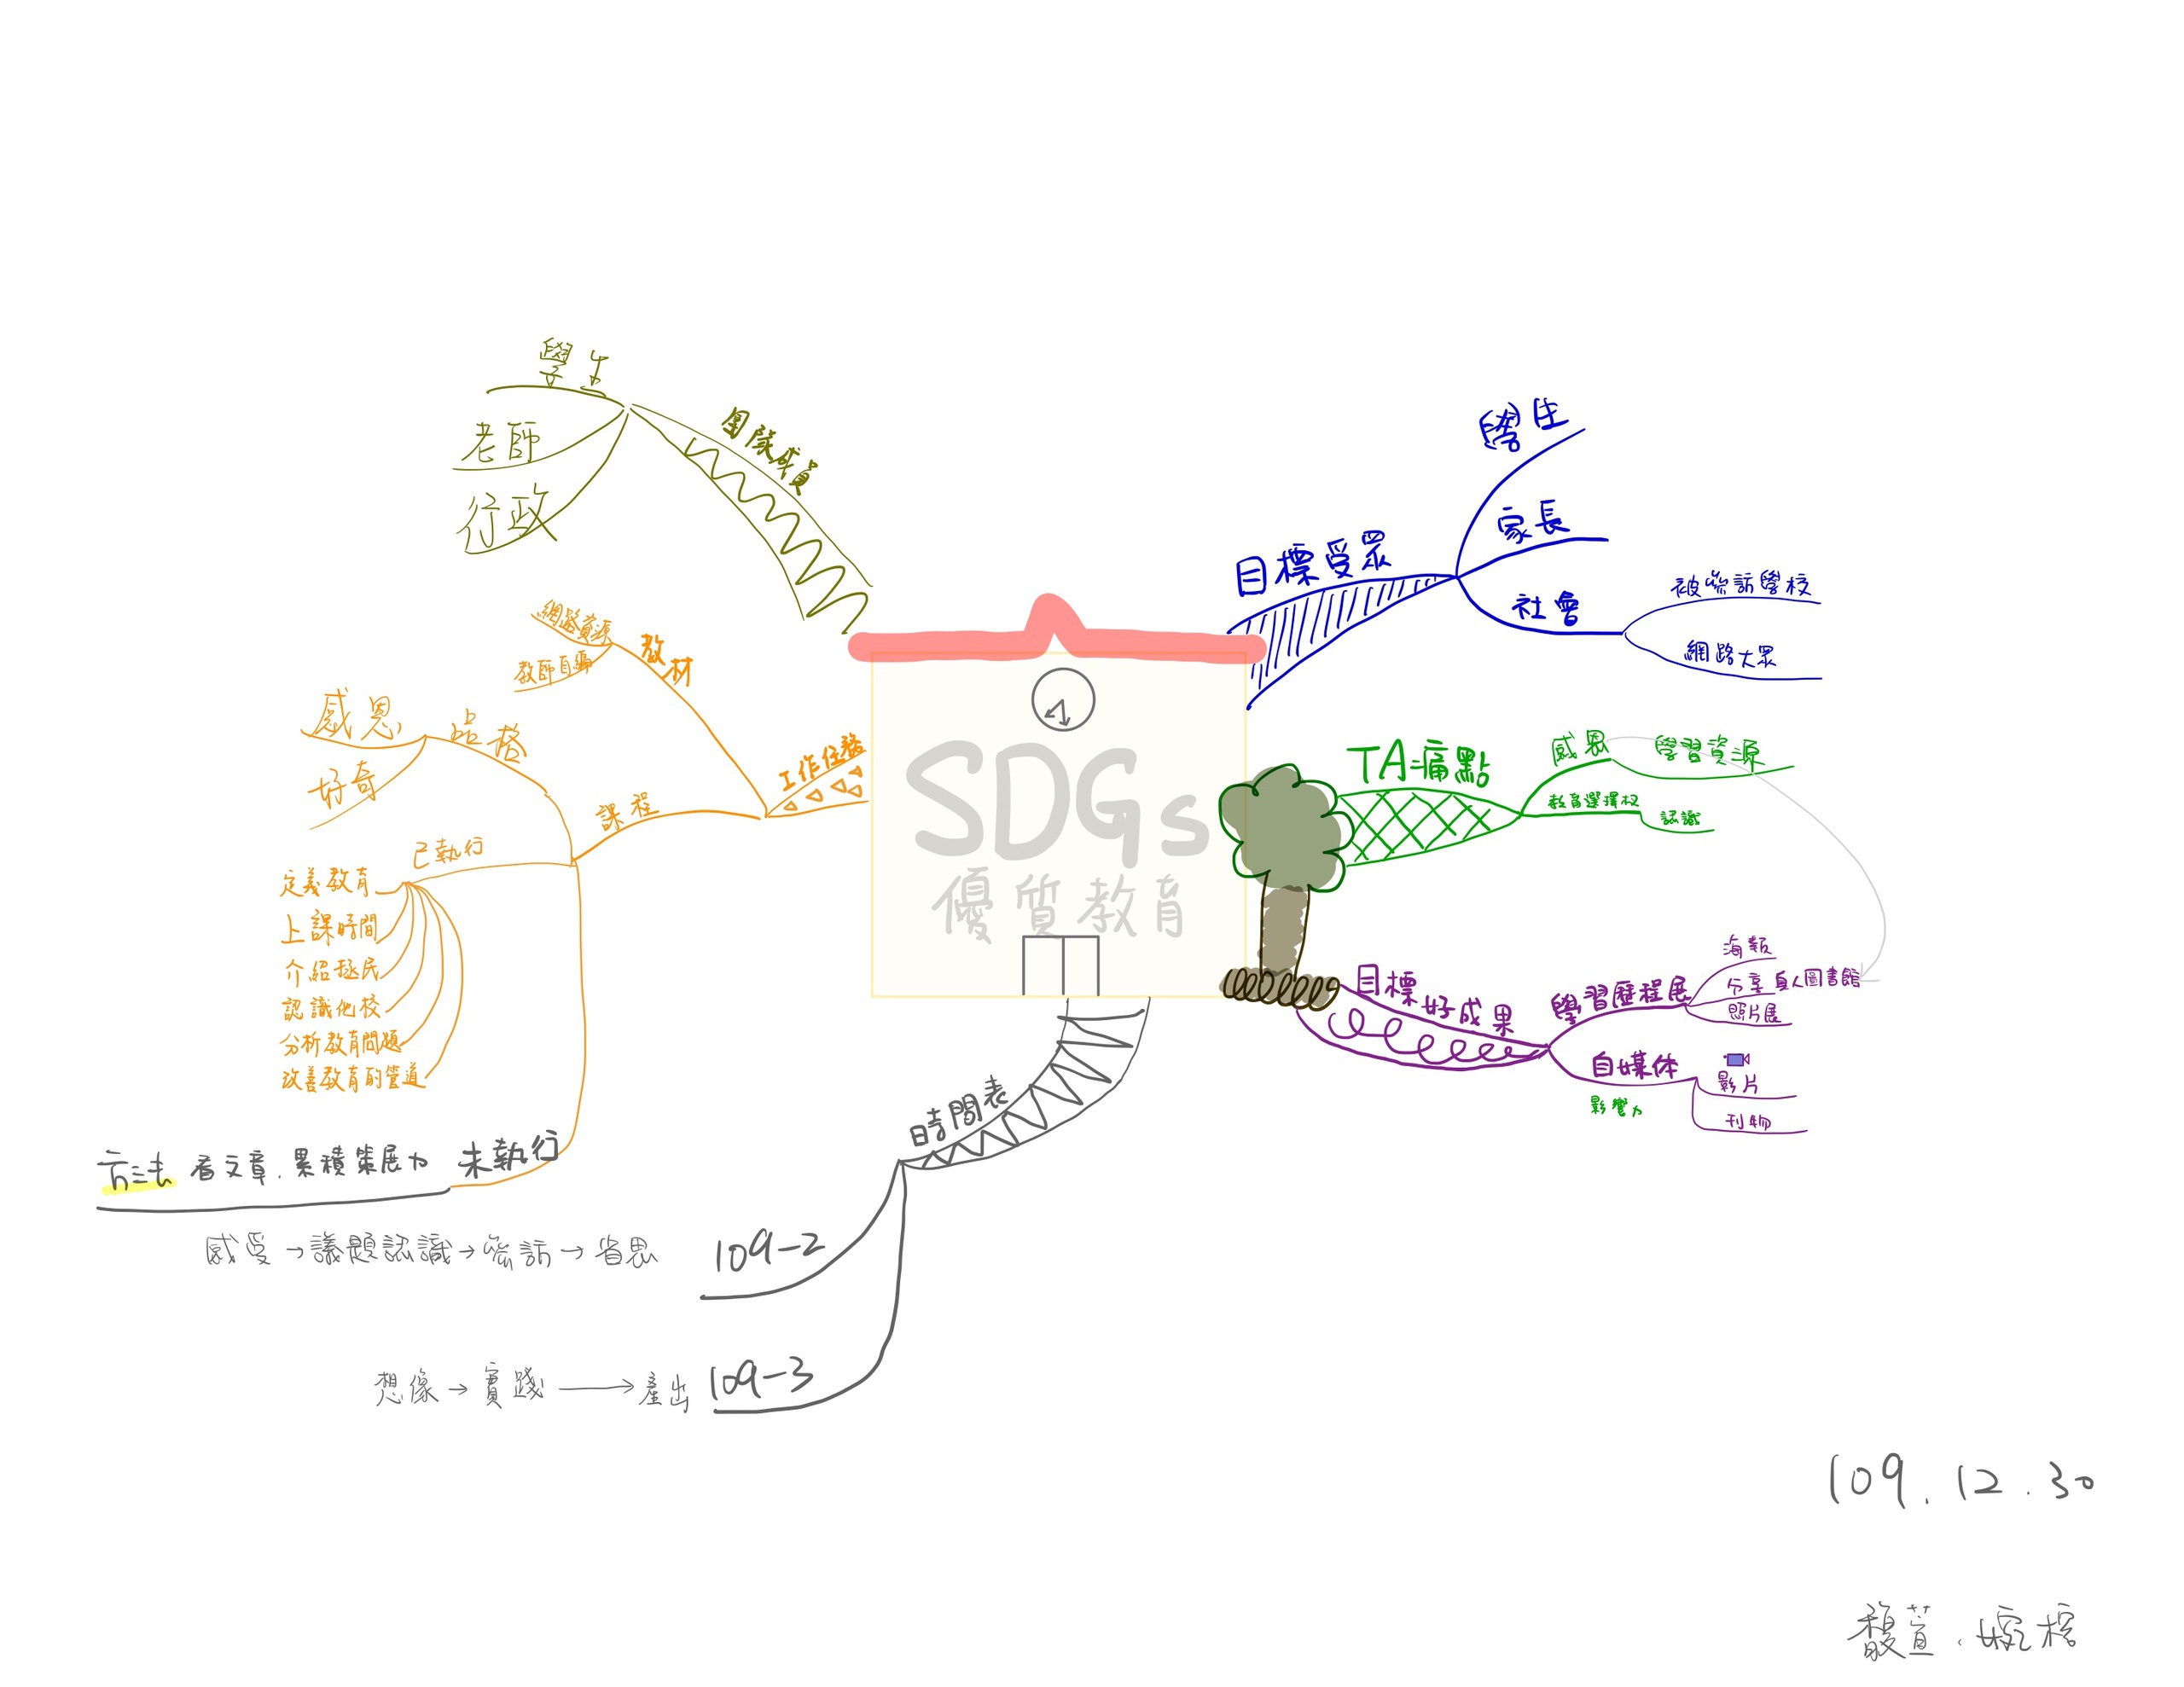 SDGs
優質教育
目標受眾
學生
家長
社會
被參訪學校
網路大眾
TA痛點
感恩
學習資源
教育選擇權
認識
目標好成果
學習歷程展
海報
分享 真人圖書館
照片展
自媒体
影響力
影片
刊物
時間表
109-2
感受→議題認識→參訪→省思
109-3
想像→實踐→產出
工作任務
教材
網路資源
教師自編
課程
品格
感恩
好奇
已執行
定義教育
上課時間
介紹拯民
認識他校
分析教育問題
改善教育的管道
未執行
方法 看文章.累積策展力
團隊成員
學生
老師
行政
109.12.30
馥萱.